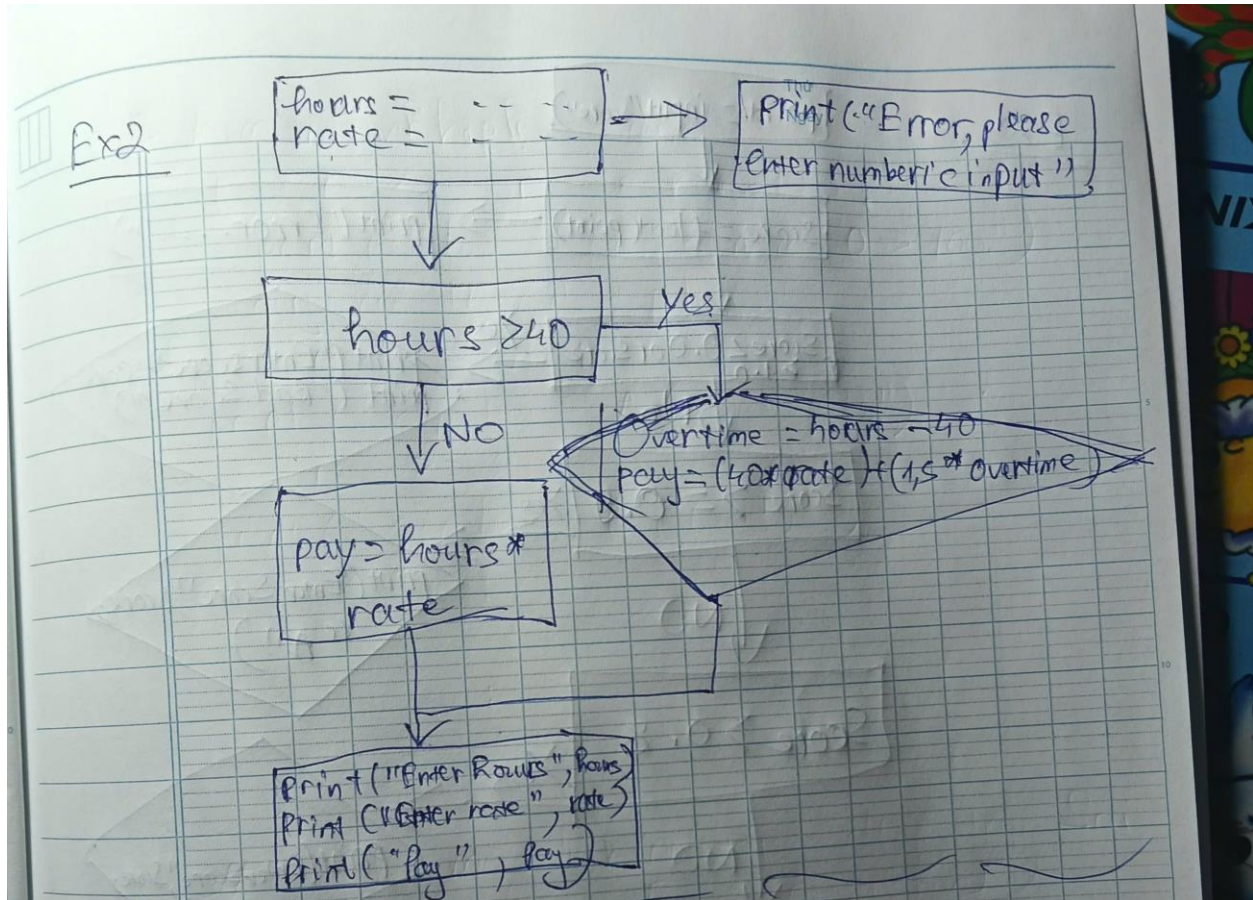 Ex2
hours = - - - -
rate = - -
Print("Error, please
enter numberic input")
hours >40
Yes
NO
Overtime = hours - 40
pay = (40* rate) + (1,5* overtime)
pay = hours*
rate
Print ("Enter hours", hours)
Print ("Enter rate", rate)
Print ("Pay", pay)